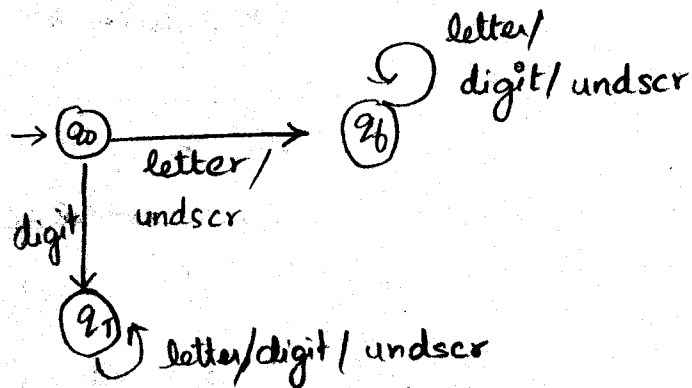 letter/
digit/ undscr
q0
qf
letter/
undscr
digit
qT
letter/digit/ undscr